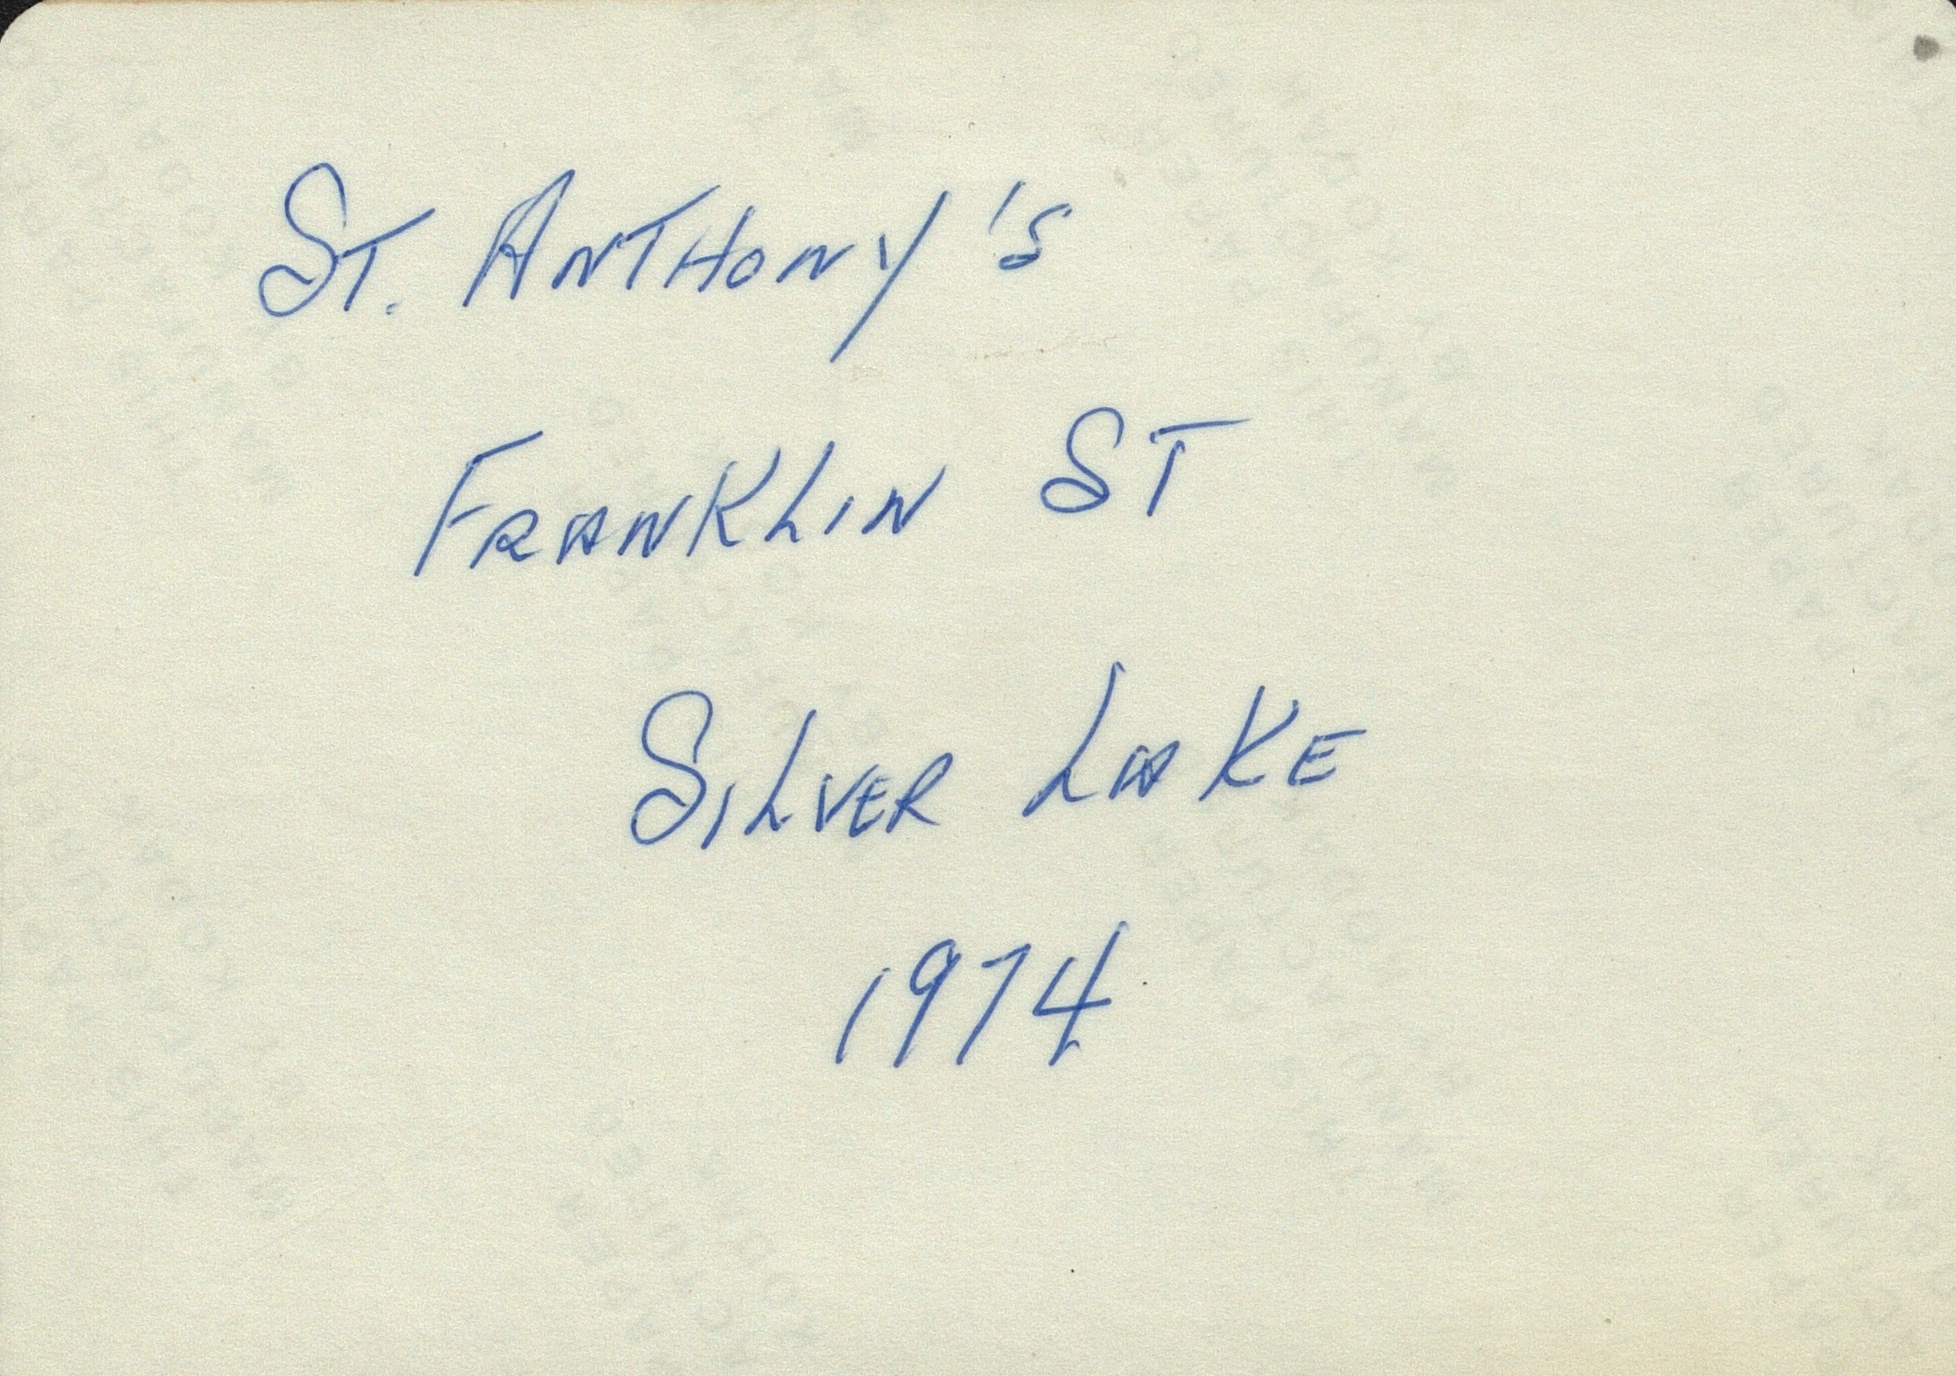 St. Anthony's
Franklin St
Silver Lake
1974